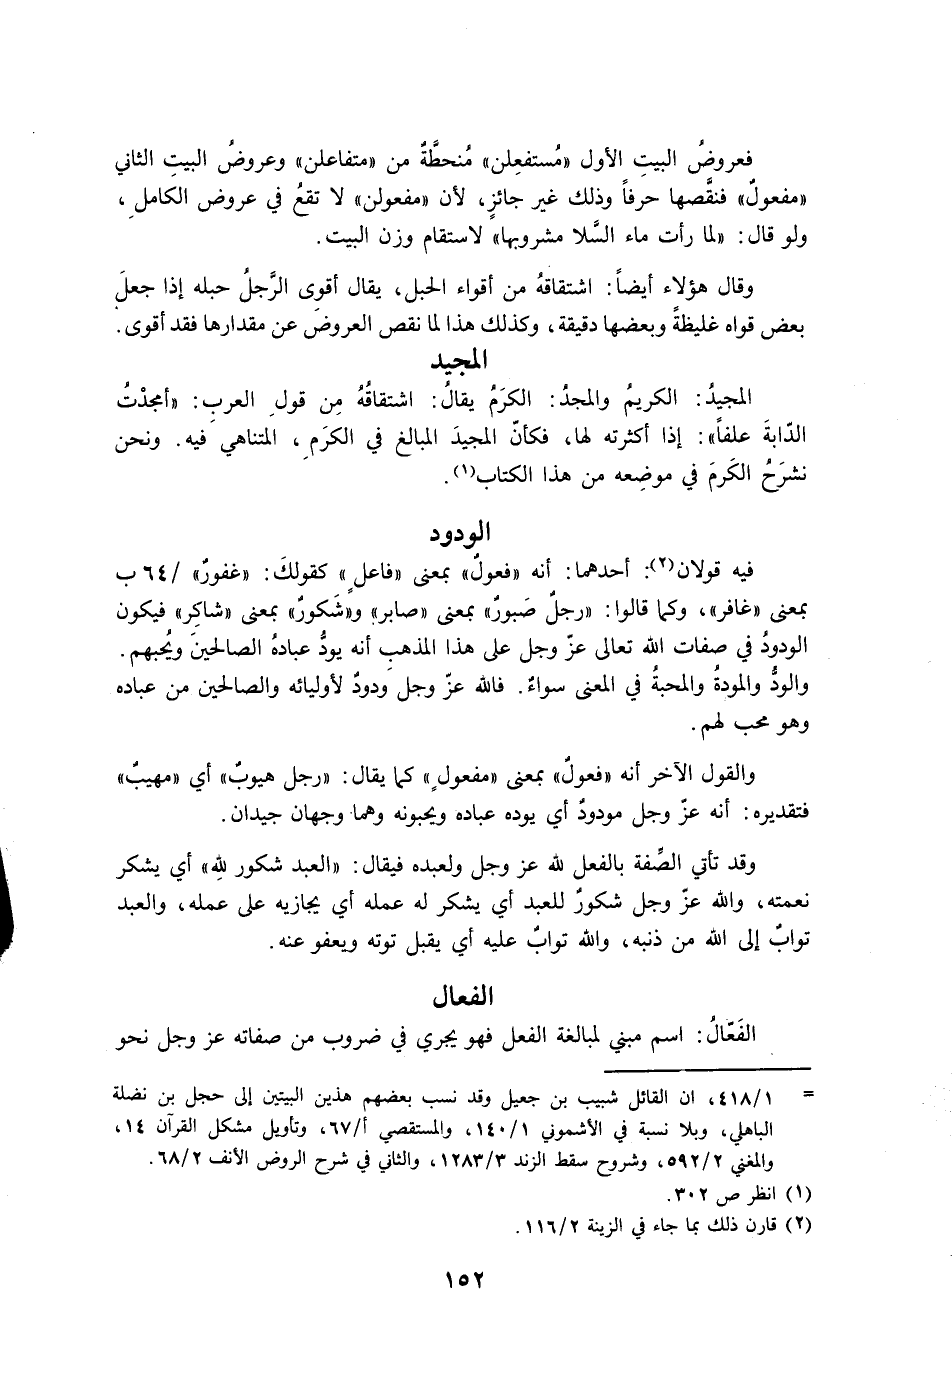 فعروضُ البيتِ الأول «مُستفعِلن» مُنحطَّةٌ من «متفاعلن» وعروضُ البيتِ الثاني
«مفعولٌ» فنقَّصها حرفاً وذلك غير جائزٍ، لأن «مفعولن» لا تقعُ في عروض الكامل،
ولو قال: «لما رأت ماء السَّلا مشروبها» لاستقام وزن البيت.
وقال هؤلاء أيضاً: اشتقاقهُ من أقواء الحبل، يقال أقوى الرَّجلُ حبله إذا جعلَ
بعض قواه غليظةً وبعضها دقيقة، وكذلك هذا لما نقص العروض عن مقدارها فقد أقوى.
المجيد
المجيدُ: الكريمُ والمجدُ: الكرَمُ يقالُ: اشتقاقُهُ مِن قولِ العربِ: «أمجدْتُ
الدّابةَ علفاً»: إذا أكثرته لها، فكأنّ المجيدَ المبالغ في الكرَمِ، المتناهي فيه. ونحن
نشرَحُ الكَرمَ في موضعِه من هذا الكتاب(١).
الودود
فيه قولان(٢): أحدهما: أنه «فعولٌ» بمعنى «فاعلٍ» كقولكَ: «غفورٌ» /٦٤ ب
بمعنى «غافر»، وكما قالوا: «رجلٌ صَبورٌ» بمعنى «صابر» و«شَكورٌ» بمعنى «شاكِر» فيكون
الودودُ في صفات الله تعالى عزّ وجل على هذا المذهب أنه يودُّ عبادهُ الصالحينَ ويُحبهم.
والودُّ والمودةُ والمحبةُ في المعنى سواءٌ. فالله عزّ وجل ودودٌ لأوليائه والصالحين من عباده
وهو محب لهم.
والقول الآخر أنه «فعولٌ» بمعنى «مفعولٍ» كما يقال: «رجل هيوبٌ» أي «مهيبٌ»
فتقديره: أنه عزّ وجل مودودٌ أي يوده عباده ويحبونه وهما وجهان جيدان.
وقد تأتي الصِّفة بالفعل لله عز وجل ولعبده فيقال: «العبد شكور للهِ» أي يشكر
نعمته، والله عزّ وجل شكورٌ للعبد أي يشكر له عمله أي يجازيه على عمله، والعبد
توابٌ إلى الله من ذنبه، والله توابٌ عليه أي يقبل توته ويعفو عنه.
الفعال
الفَعّالُ: اسم مبني لمبالغة الفعل فهو يجري في ضروب من صفاته عز وجل نحو
= ٤١٨/١، ان القائل شبيب بن جعيل وقد نسب بعضهم هذين البيتين إلى حجل بن نضلة
الباهلي، وبلا نسبة في الأشموني ١٤٠/١، والمستقصي أ/٦٧، وتأويل مشكل القرآن ١٤،
والمغني ٥٩٢/٢، وشروح سقط الزند ١٢٨٣/٣، والثاني في شرح الروض الأنف ٦٨/٢.
(١) انظر ص ٣٠٢.
(٢) قارن ذلك بما جاء في الزينة ١١٦/٢.
١٥٢